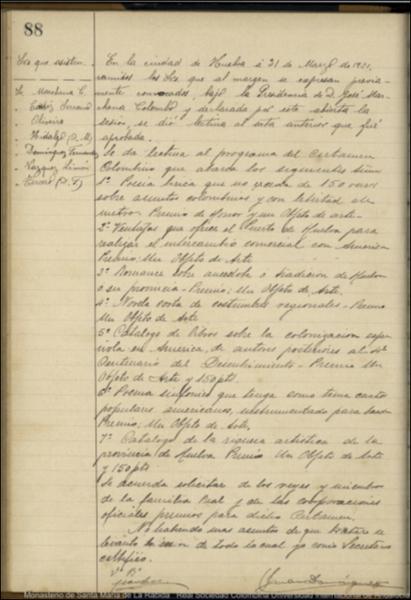 88
Sres que asisten
Sr. Marchena C.
" Cádiz Serrano
" Oliveira
" Hidalgo (D. M)
" Domínguez Fernández
" Vázquez Limón
" Terrero (D. J)
En la ciudad de Huelva á 21 de Marzo de 1921,
reunidos los Sres que al margen se expresan previa-
mente convocados, bajo la Presidencia de D. José Mar-
chena Colombo y declarada por este abierta la
sesión, se dió lectura al acta anterior que fué
aprobada.
Se da lectura al programa del Certamen
Colombino que abarca los siguientes temas
1º Poesía lírica que no exceda de 150 versos
sobre asuntos colombinos y con libertad de
metro - Premio de Honor y un Objeto de arte -
2º Ventajas que ofrece el Puerto de Huelva para
realizar el intercambio comercial con America
Premio; Un Objeto de Arte
3º Romance sobre anecdota ó tradicion de Huelva
o su provincia - Premio; Un Objeto de Arte.
4º Novela corta de costumbres regionales - Premio
Un Objeto de Arte
5º Catálogo de libros sobre la colonizacion espa-
ñola en America, de autores posteriores al 4º
Centenario del Descubrimiento - Premio Un
Objeto de Arte y 150 pts.
6º Poema sinfonico que tenga como tema cantos
populares americanos, instrumentado para banda
Premio; Un Objeto de Arte.
7º Catalogo de la riqueza artística de la
provincia de Huelva Premio Un Objeto de Arte
y 150 pts
Se acuerda solicitar de los reyes y miembros
de la familia Real y de las corporaciones
oficiales premios para dicho Certamen.
No habiendo mas asuntos de que tratar se
levantó la sesion de todo lo cual yo como Secretario
certifico.
Vº Bº
Monasterio de Santa María de La Rábida
Real Sociedad Colombina Onubense
Universidad Internacional de Andalucía